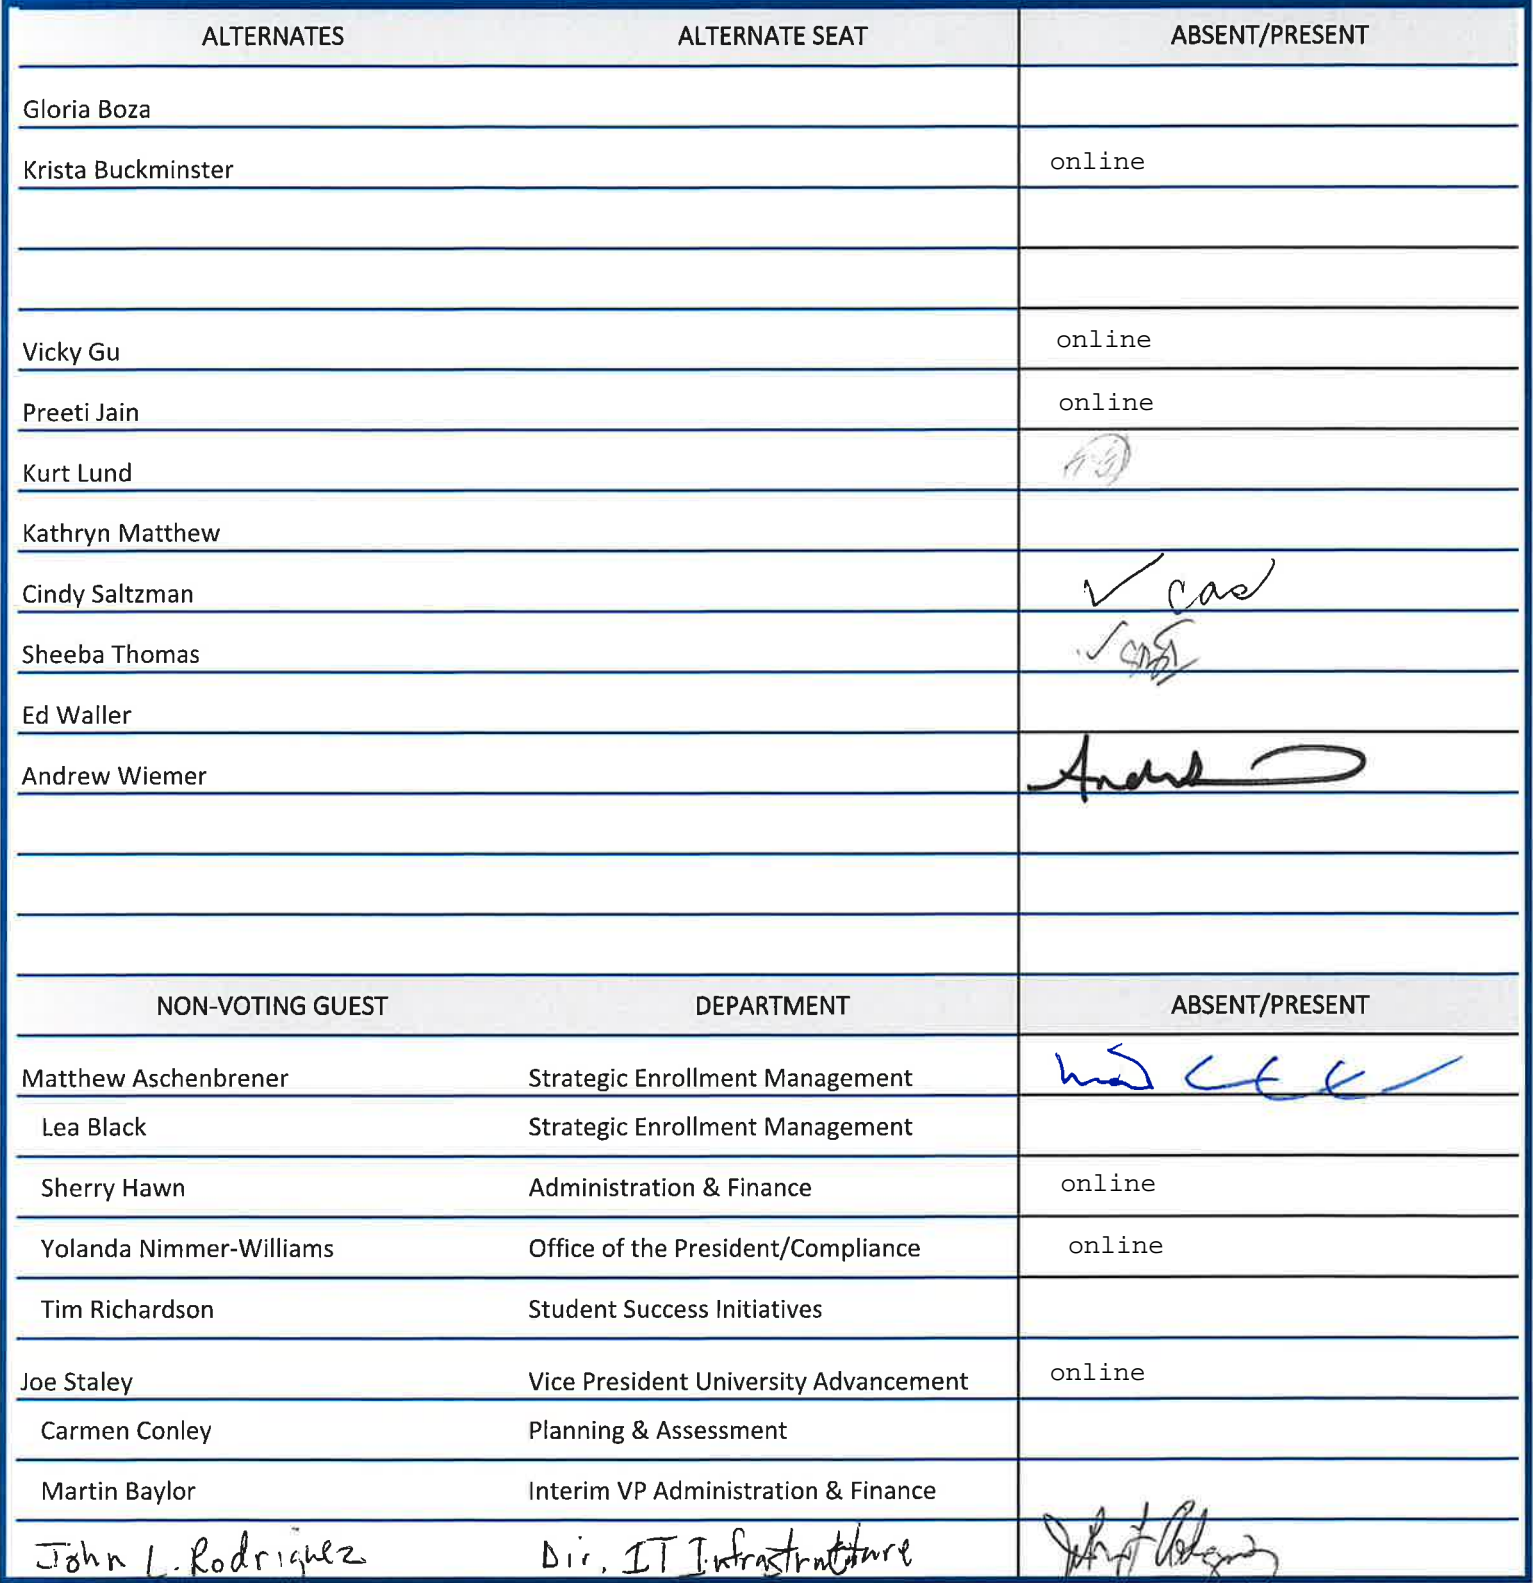 ALTERNATES ALTERNATE SEAT ABSENT/PRESENT
Gloria Boza
Krista Buckminster online
Vicky Gu online
Preeti Jain online
Kurt Lund
Kathryn Matthew
Cindy Saltzman ✓ cas
Sheeba Thomas ✓
Ed Waller
Andrew Wiemer
NON-VOTING GUEST DEPARTMENT ABSENT/PRESENT
Matthew Aschenbrener Strategic Enrollment Management
Lea Black Strategic Enrollment Management
Sherry Hawn Administration & Finance online
Yolanda Nimmer-Williams Office of the President/Compliance online
Tim Richardson Student Success Initiatives
Joe Staley Vice President University Advancement online
Carmen Conley Planning & Assessment
Martin Baylor Interim VP Administration & Finance
John L. Rodriguez Dir. IT Infrastructure